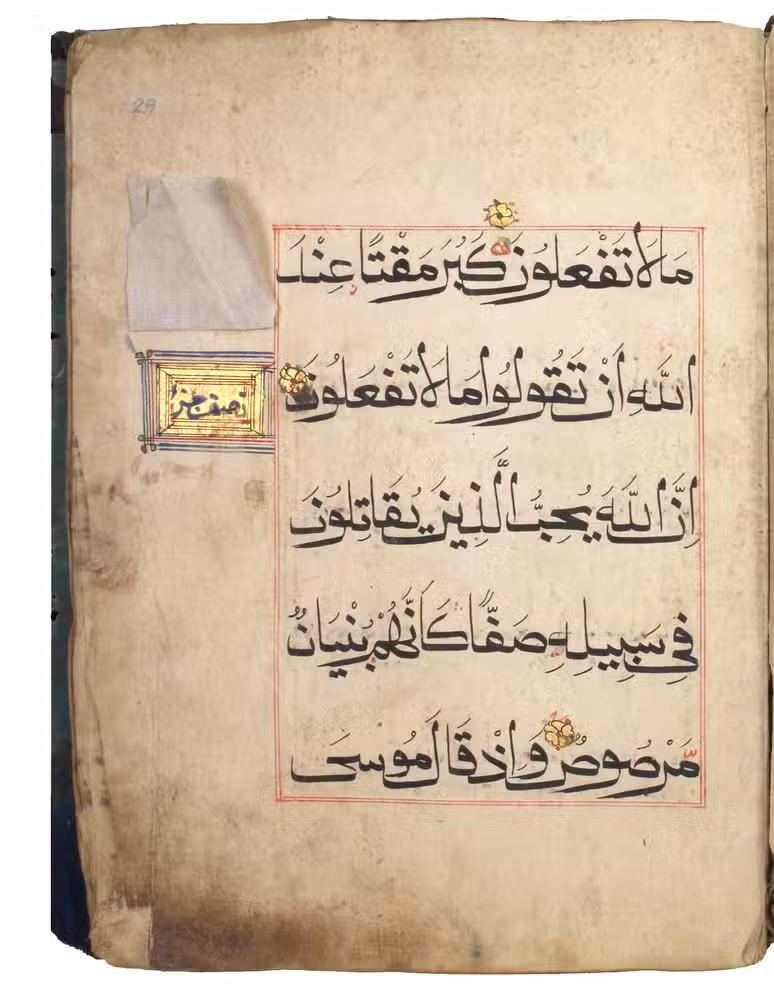 29
مَا لَا تَفْعَلُونَ كَبُرَ مَقْتًا عِنْدَ
اللَّهِ أَنْ تَقُولُوا مَا لَا تَفْعَلُونَ
نصف جزء
اِنَّ اللَّهَ يُحِبُّ الَّذِينَ يُقَاتِلُونَ
فِي سَبِيلِهِ صَفًّا كَأَنَّهُمْ بُنْيَانٌ
مَرْصُوصٌ وَاِذْ قَالَ مُوسَى